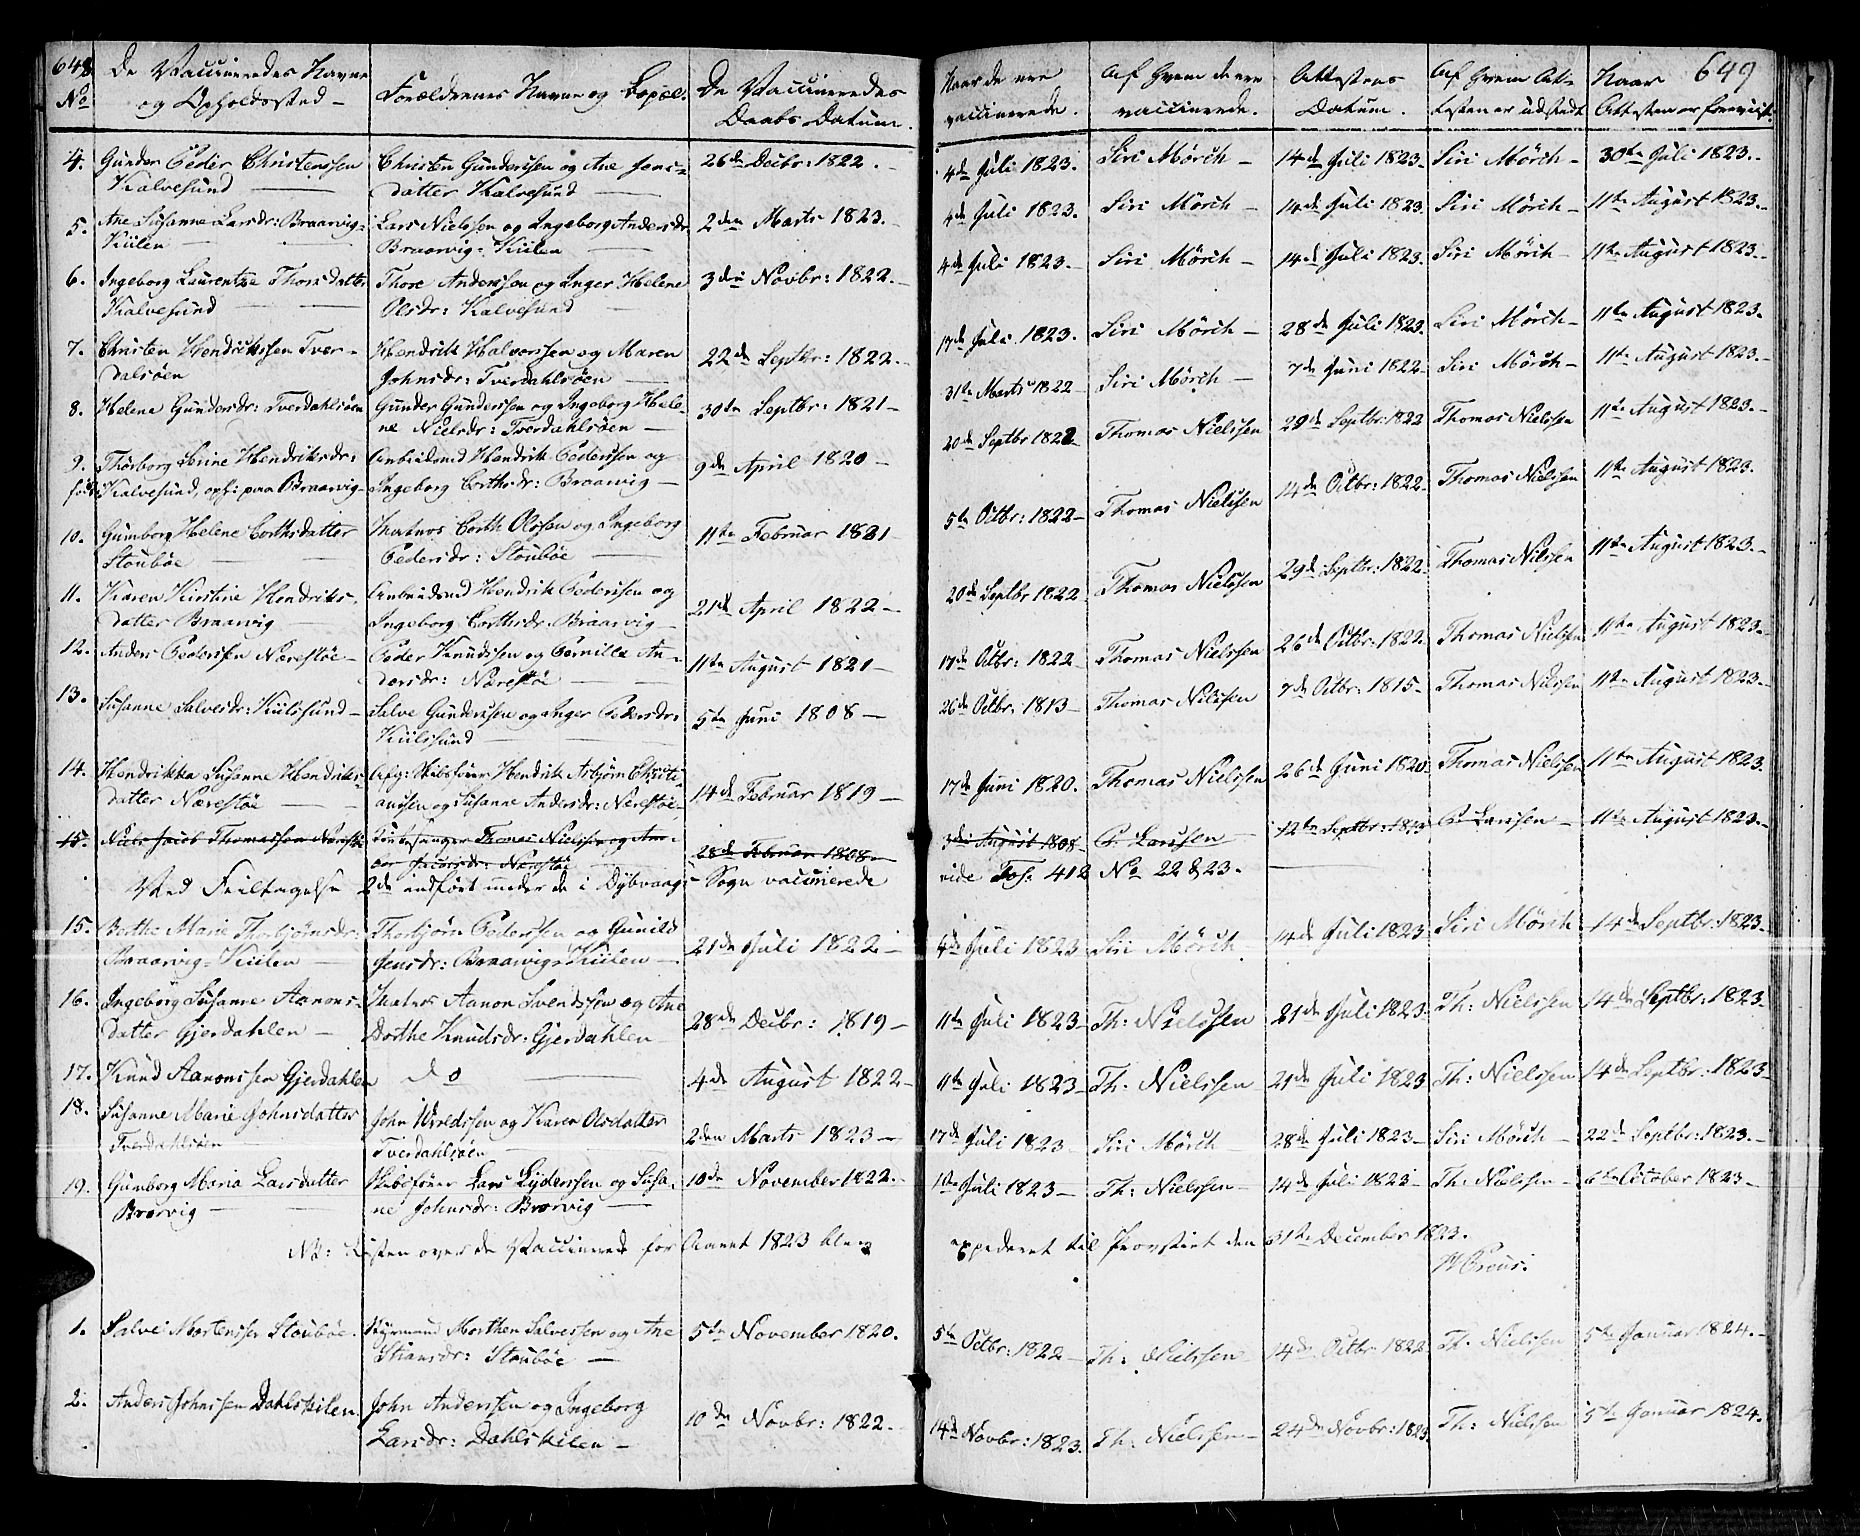 648
No
De Vaccineredes Navne
og Opholdssted –
Forældrenes Navne og Bopæl.
De Vaccineredes
Daabs Datum.
Naar de ere
vaccinerede.
Af Hvem de ere
vaccinerede.
Attestens
Datum.
Af Hvem At-
testen er udstedt
Naar
Attesten er foreviist.
649
4. Gunder Peder Christenssen
Kalvesund –
Christen Gunderssen og Ane Jens-
datter Kalvesund –
26de Decbr: 1822. –
4de Juli 1823.
Siri Mörch –
14de Juli 1823 –
Siri Mörch –
30te Juli 1823. –
5. Ane Susanne Larsdr: Braarvig-
Kiilen –
Lars Nielssen og Ingeborg Andersdr.
Braarvig-Kiilen –
2den Marts 1823. –
4de Juli 1823.
Siri Mörch –
14de Juli 1823.
Siri Mörch –
11te August 1823. –
6. Ingeborg Laurentze Thorsdatter
Kalvesund –
Thore Anderssen og Inger Helene
Olsdr: Kalvesund –
3die Novbr: 1822. –
4de Juli 1823. –
Siri Mörch –
14de Juli 1823.
Siri Mörch –
11te August 1823. –
7. Christen Hendrikssen Tver-
dalsöen
Hendrik Halvorssen og Maren
Johnsdr: Tverdahlsöen –
22de Septbr: 1822. –
17de Juli 1823.
Siri Mörch –
28de Juli 1823.
Siri Mörch –
11te August 1823. –
8. Helene Gundersdr: Tverdahlsöen
Gunder Gunderssen og Ingeborg Hele-
ne Nielsdr: Tverdahlsöen –
30te Septbr: 1821 –
31te Marts 1822
Siri Mörch –
7de Juni 1822 –
Siri Mörch –
11te August 1823. –
9. Thorborg Serine Hendriksdr:
født Kalvesund, oph: paa Braarvig –
Arbeidsmd Hendrik Pederssen og
Ingeborg Corthsdr: Braarvig –
9de April 1820 –
20de Septbr 1822
Thomas Nielssen
29de Septbr: 1822
Thomas Nielssen
11te August 1823. –
10. Gumborg Helene Corthsdatter
Stoubøe –
Matros Corth Olssen og Ingeborg
Pedersdr: Stoubøe –
11te Februar 1821
5te Octbr: 1822 –
Thomas Nielssen
14de Octbr: 1822.
Thomas Nielssen
11te August 1823.
11. Karen Kirstine Hendriks-
datter Braarvig –
Arbeidsmd Hendrik Pederssen og
Ingeborg Corthsdr. Braarvig –
21de April 1822 –
20de Septbr 1822
Thomas Nielssen
29de Septbr: 1822.
Thomas Nielssen
11te August 1823. –
12. Anders Pederssen Nærestøe –
Peder Knudssen og Pernille An-
dersdr: Nærestøe –
11te August 1821 –
17de Octbr: 1822
Thomas Nielssen
26de Octbr: 1822.
Thomas Nielssen
11te August 1823. –
13. Susanne Salvesdr: Kiilssund –
Salve Gunderssen og Inger Pedersdr:
Kiilssund –
5te Juni 1808 –
26de Octbr: 1813 –
Thomas Nielssen
7de Octbr: 1815 –
Thomas Nielssen
11te August 1823. –
14. Hendrikka Susanne Hendriks-
datter Nærestøe –
Afg: Skibsfører Hendrik Asbjørn Christi-
anssen og Susanne Andersdr: Nærestøe
14de Februar 1819 –
17de Juni 1820.
Thomas Nielssen
26de Juni 1820
Thomas Nielssen
11te August 1823.
15. Niels Jacob Thomassen Nærestøe
Kirkesanger Thomas Nielssen og An-
28de Februar 1808 –
3die August 1808 –
P. Larssen –
12te Septbr: 1813
P. Larssen –
11te August 1823. –
Ved Feiltagelse 2de indført under de i Dybvaag-Sogn vaccinerede
vide Fos. 412 No 22 & 23.
15. Berthe Marie Thorbjörnsdr:
Braarvig-Kiilen –
Thorbjörn Pederssen og Gunild
Jensdr: Braarvig-Kiilen –
21de Juli 1822 –
4de Juli 1823
Siri Mörch –
14de Juli 1823
Siri Mörch
14de Septbr: 1823. –
16. Ingeborg Susanne Aanons-
datter Gjerdahlen –
Matros Aanon Svendssen og Ane
Dorthe Knudsdr: Gjerdahlen
28de Decbr: 1819 –
11te Juli 1823 –
Th: Nielssen
21de Juli 1823.
Th: Nielssen
14de Septbr: 1823 –
17. Knud Aanonssen Gjerdahlen
do –
4de August 1822 –
11te Juli 1823
Th: Nielssen
21de Juli 1823
Th: Nielssen
14de Septbr: 1823 –
18. Susanne Marie Johnsdatter
Tverdahlsöen
John Wroldssen og Karen Olsdatter
Tverdahlsöen –
2den Marts 1823 –
17de Juli 1823
Siri Mörch
28de Juli 1823 –
Siri Mörch –
22de Septbr: 1823. –
19. Gumborg Maria Larsdatter
Brorvig –
Skibsfører Lars Lyderssen og Susa-
ne Johnsdr: Brorvig –
10de November 1822. –
1ste Juli 1823 –
Th: Nielssen
14de Juli 1823 –
Th: Nielssen –
6te October 1823 –
NB: Listen over de Vaccinerede for Aaret 1823 blev expederet til Provstiet den 31te December 1823.
1. Salve Mortenssen Stoubøe.
Styrmand Morthen Salvessen og Ane
Stiansdr: Stoubøe –
5te November 1820.
5te Octbr: 1822 –
Th: Nielssen –
14de Octbr 1822
Th: Nielssen
5te Januar 1824. –
2. Anders Johnssen Dahlskilen
John Anderssen og Ingeborg
Larsdr: Dahlskilen –
10de Novbr: 1822. –
14de Novbr: 1823.
Th: Nielssen –
24de Novbr: 1823
Th: Nielssen
5te Januar 1824.